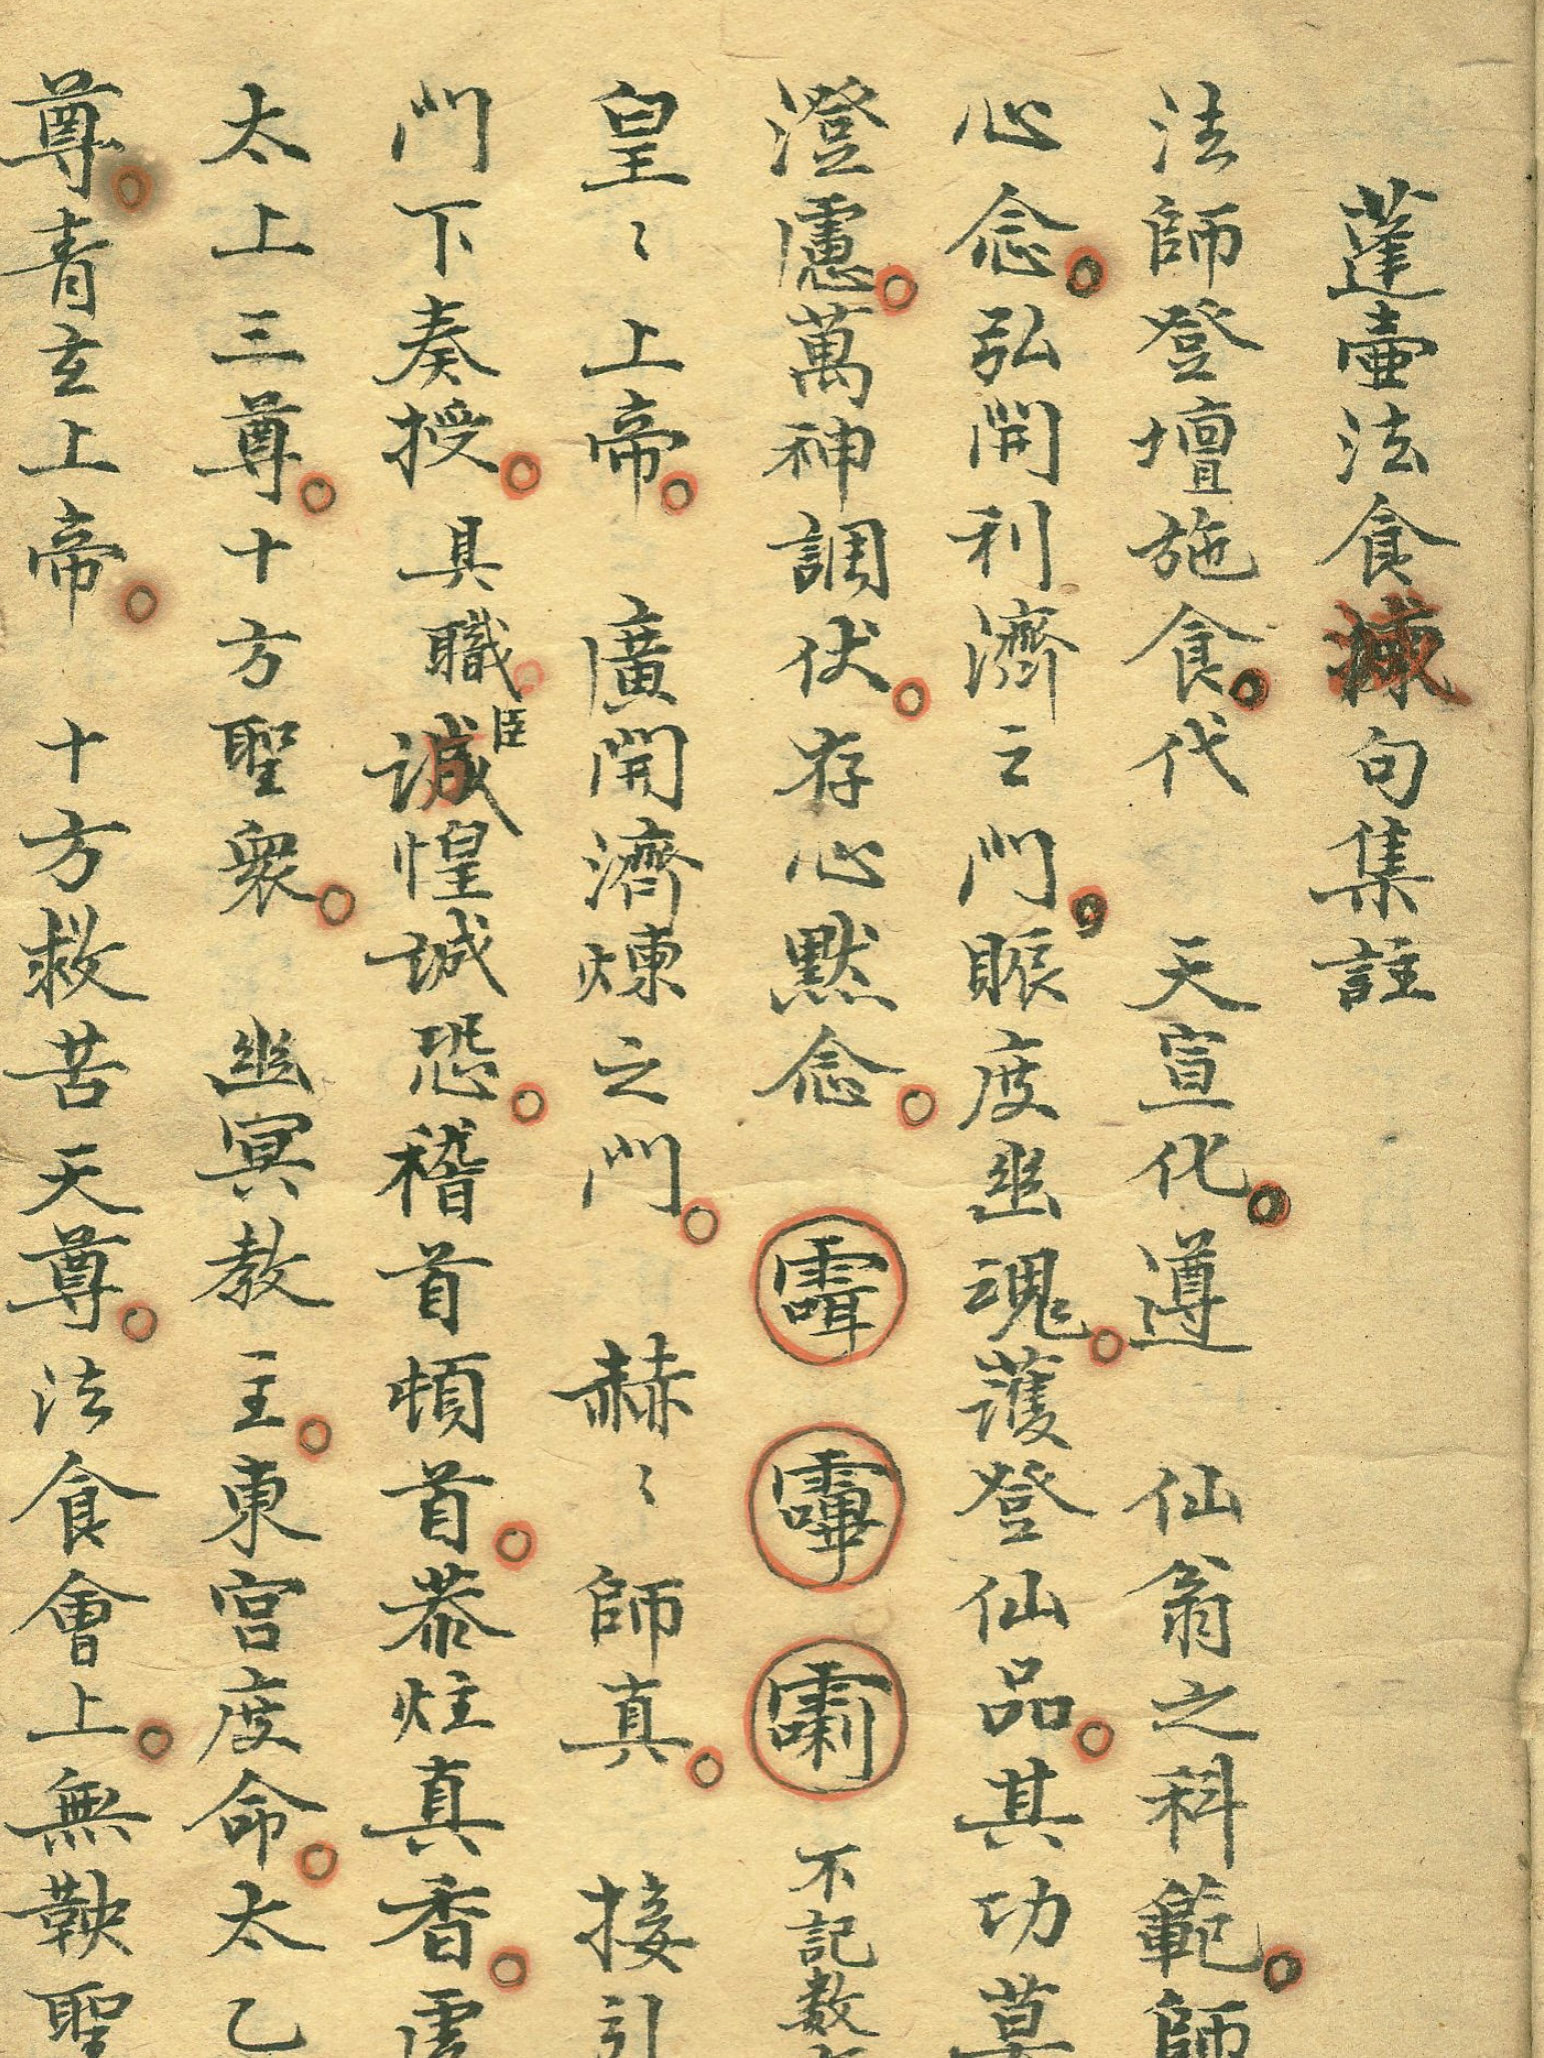 蓬壷法食摵句集註
法師登壇施食代 天宣化遵 仙翁之科範師
心念弘開利濟之門賑度幽魂護登仙品其功莫
澄慮萬神調伏存心默念 不記數
皇〻上帝 廣開濟煉之門 赫〻師真 接引
門下奏授 具職臣誠惶誠恐稽首頓首恭炷真香虔
太上三尊十方聖衆 幽冥教主東宮度命太乙
尊青玄上帝 十方救苦天尊法食會上無鞅聖